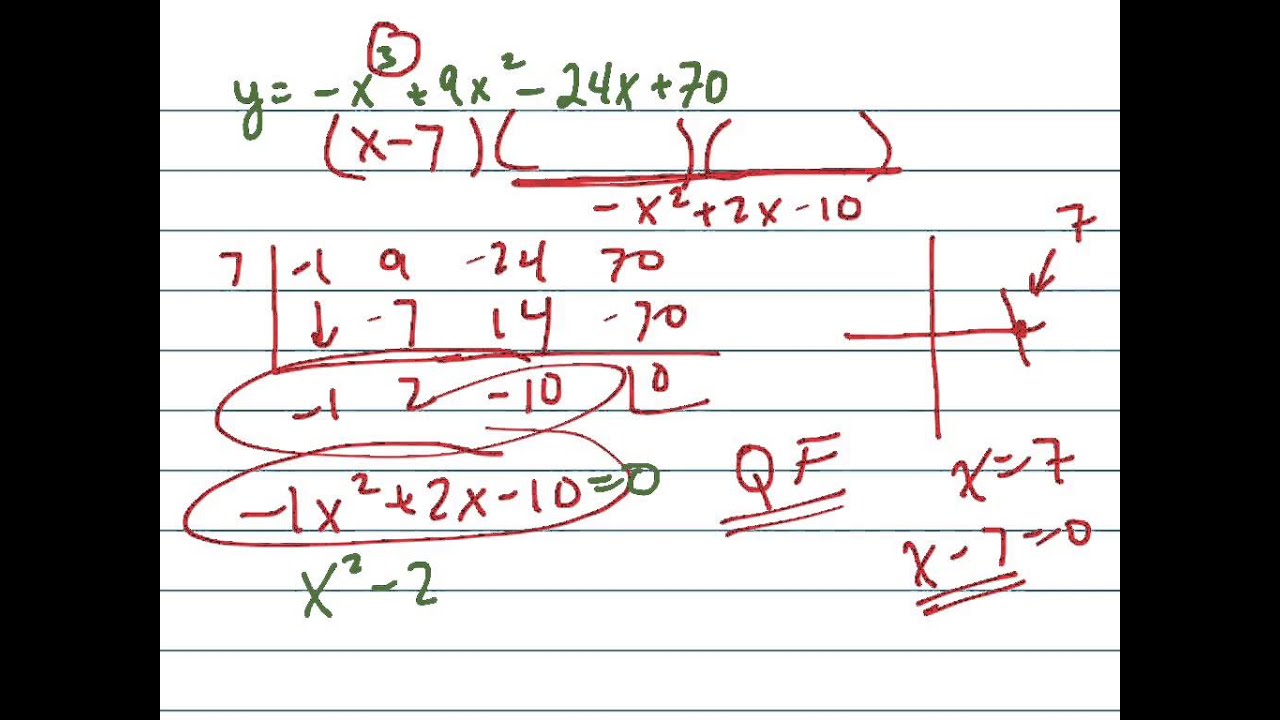 y = -x³ + 9x² - 24x + 70
(x-7)(      )(      )
-x² + 2x - 10
7
7 | -1 9 -24 70
↓ -7 14 -70
-1 2 -10 | 0
-1x² + 2x - 10 = 0
QF
x = 7
x - 7 = 0
x² - 2